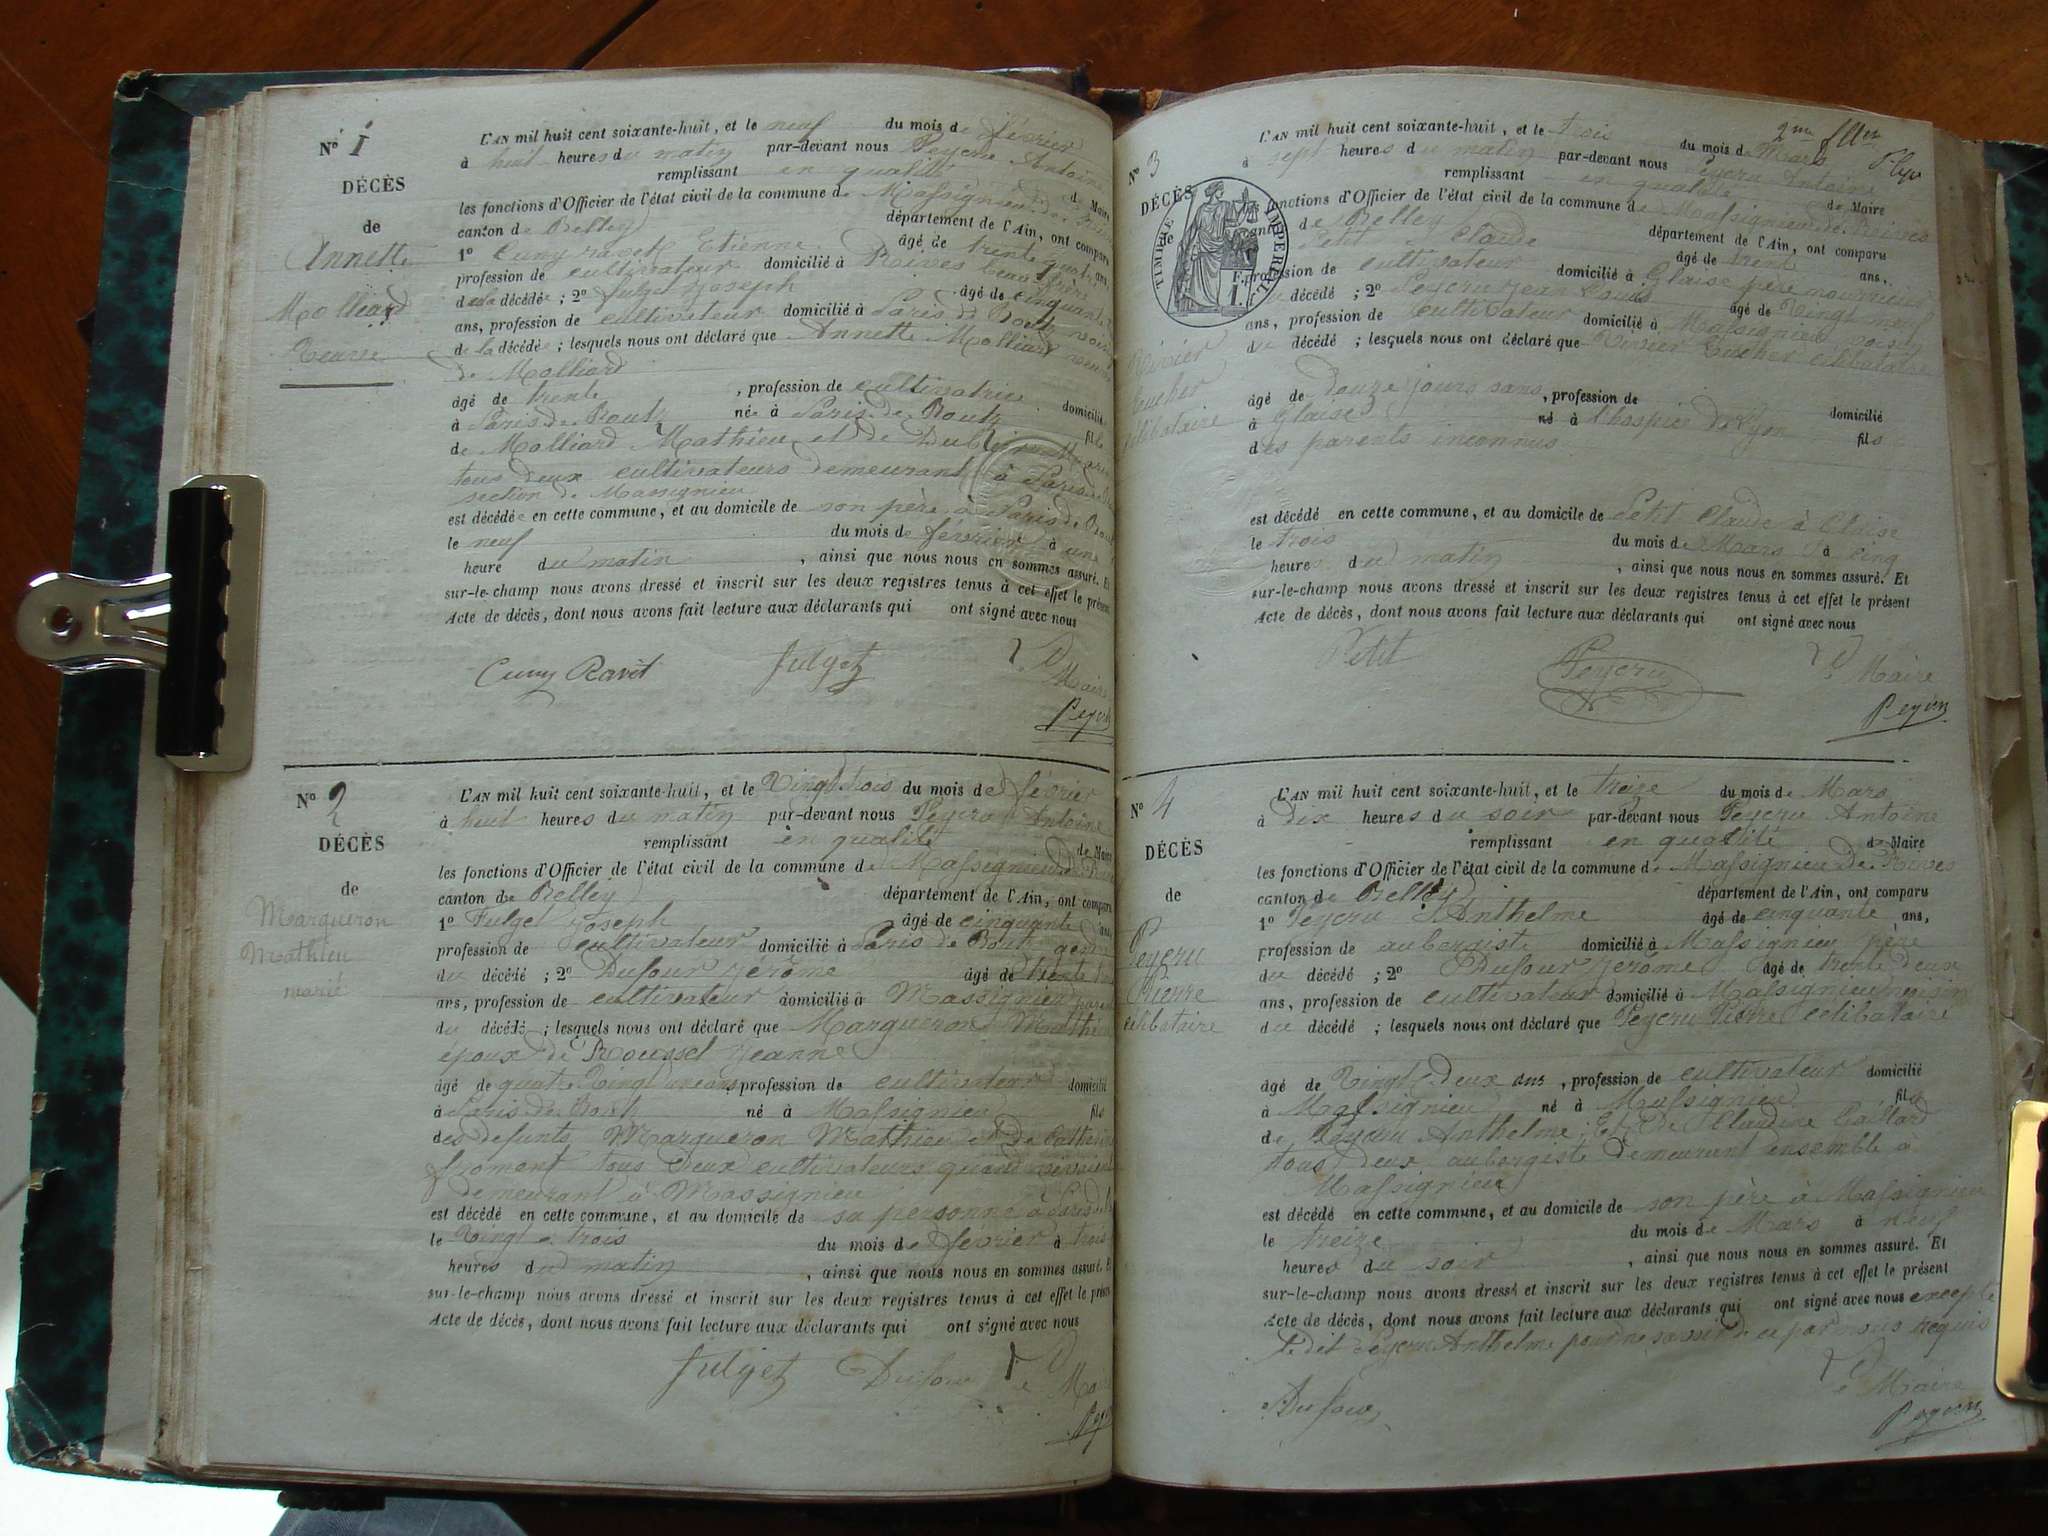 Nº 1
DÉCÈS
de
Annette
Molliard
Veuve
L'AN mil huit cent soixante-huit, et le neuf du mois de février
à huit heures du matin par-devant nous Peycru Antoine
remplissant en qualité de Maire
les fonctions d'Officier de l'état civil de la commune de Massignieu de Rives
canton de Belley département de l'Ain, ont comparu
1º Cuny ravet Etienne âgé de trente quatre ans,
profession de cultivateur domicilié à Rives beau frère
de la décédée ; 2º fulget Joseph âgé de cinquante
ans, profession de cultivateur domicilié à Paris de Boutz voisin
de la décédée ; lesquels nous ont déclaré que Annette Molliard veuve
de Molliard
âgé de trente , profession de cultivatrice domiciliée
à Paris de Boutz née à Paris de Boutz fille
de Molliard Mathieu et de
tous deux cultivateurs demeurant à Paris de
section de Massignieu
est décédée en cette commune, et au domicile de son père à Paris de Boutz
le neuf du mois de février à une
heure du matin , ainsi que nous nous en sommes assuré. Et
sur-le-champ nous avons dressé et inscrit sur les deux registres tenus à cet effet le présent
Acte de décès, dont nous avons fait lecture aux déclarants qui ont signé avec nous
Cuny Ravet fulget Maire
Peycru
Nº 2
DÉCÈS
de
Margueron
Mathieu
marié
L'AN mil huit cent soixante-huit, et le Vingt trois du mois de février
à huit heures du matin par-devant nous Peycru Antoine
remplissant en qualité de Maire
les fonctions d'Officier de l'état civil de la commune de Massignieu de Rives
canton de Belley département de l'Ain, ont comparu
1º Fulget Joseph âgé de cinquante ans,
profession de cultivateur domicilié à Paris de Boutz gendre
du décédé ; 2º Dufour Jérôme âgé de trente deux
ans, profession de cultivateur domicilié à Massignieu
du décédé ; lesquels nous ont déclaré que Margueron Mathieu
époux de Roussel Jeanne
âgé de quatre Vingt ans, profession de cultivateur domicilié
à Paris de Boutz né à Massignieu fils
des defunts Margueron Mathieu et de Catherine
froment tous deux cultivateurs quand vivaient
demeurant à Massignieu
est décédé en cette commune, et au domicile de sa personne à Paris de
le Vingt e trois du mois de février à trois
heures du matin , ainsi que nous nous en sommes assuré. Et
sur-le-champ nous avons dressé et inscrit sur les deux registres tenus à cet effet le présent
Acte de décès, dont nous avons fait lecture aux déclarants qui ont signé avec nous
fulget Dufour Le Maire
2me fllet
Nº 3
DÉCÈS
de
Rivier
Eucher
célibataire
TIMBRE IMPÉRIAL
L'AN mil huit cent soixante-huit, et le trois du mois de Mars
à sept heures du matin par-devant nous Peycru Antoine
remplissant en qualité de Maire
fonctions d'Officier de l'état civil de la commune de Massignieu de Rives
canton de Belley département de l'Ain, ont comparu
Petit Claude âgé de trent ans,
profession de cultivateur domicilié à Glaise père nourricier
du décédé ; 2º Peycru Jean Louis âgé de Vingt neuf
ans, profession de cultivateur domicilié à Massignieu voisin
du décédé ; lesquels nous ont déclaré que Rivier Eucher célibataire
âgé de Douze jours sans, profession de
à Glaise né à l'hospice de Lyon domicilié
des parents inconnus fils
est décédé en cette commune, et au domicile de Petit Claude à Glaise
le trois du mois de Mars à cinq
heures du matin , ainsi que nous nous en sommes assuré. Et
sur-le-champ nous avons dressé et inscrit sur les deux registres tenus à cet effet le présent
Acte de décès, dont nous avons fait lecture aux déclarants qui ont signé avec nous
Petit Peycru Le Maire
Peycru
Nº 4
DÉCÈS
de
Peycru
Pierre
célibataire
L'AN mil huit cent soixante-huit, et le treize du mois de Mars
à Dix heures du soir par-devant nous Peycru Antoine
remplissant en qualité de Maire
les fonctions d'Officier de l'état civil de la commune de Massignieu De Rives
canton de Belley département de l'Ain, ont comparu
1º Peycru Anthelme âgé de cinquante ans,
profession de aubergiste domicilié à Massignieu père
du décédé ; 2º Dufour Jérôme âgé de trente deux
ans, profession de cultivateur domicilié à Massignieu voisin
du décédé ; lesquels nous ont déclaré que Peycru Pierre célibataire
âgé de Vingt Deux ans , profession de cultivateur domicilié
à Massignieu né à Massignieu fils
de Peycru Anthelme Et De Claudine Gaillard
tous Deux aubergiste Demeurant ensemble à
Massignieu
est décédé en cette commune, et au domicile de son père à Massignieu
le treize du mois de Mars à neuf
heures du soir , ainsi que nous nous en sommes assuré. Et
sur-le-champ nous avons dressé et inscrit sur les deux registres tenus à cet effet le présent
Acte de décès, dont nous avons fait lecture aux déclarants qui ont signé avec nous excepté
Le dit Peycru Anthelme pour ne savoir de ce par nous requis
Dufour Le Maire
Peycru